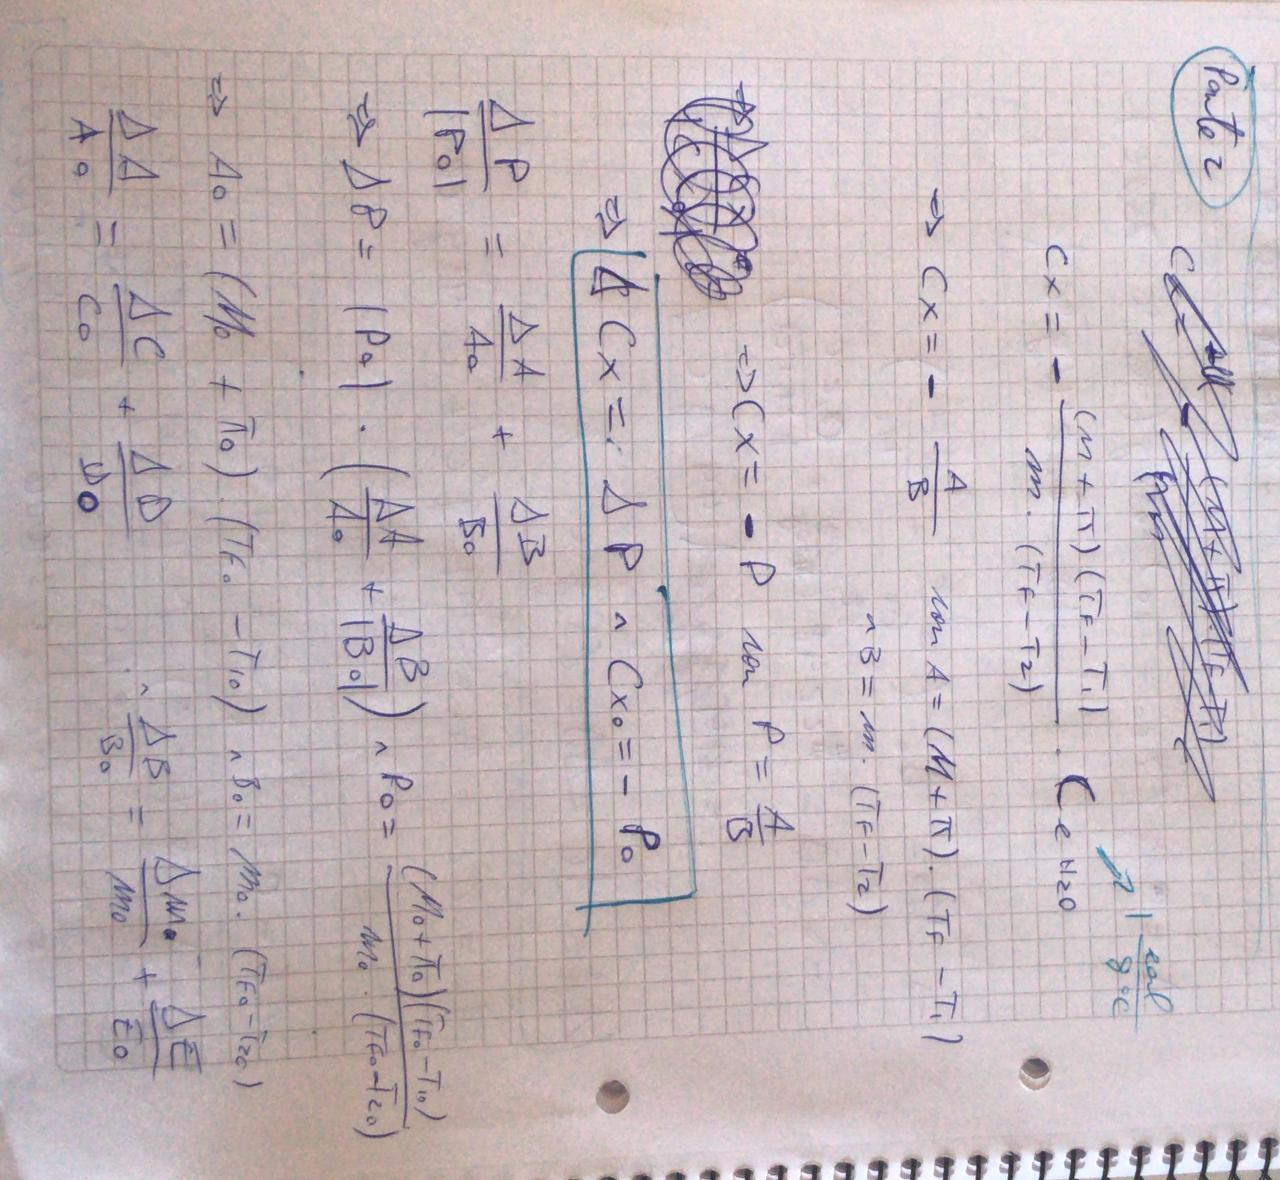 Parte 2
Cx = - (M + π)(TF - T1) / m · (TF - T2) · Ce H2O → 1 cal / g °C
⇒ Cx = - A / B con A = (M + π) · (TF - T1)
^ B = m · (TF - T2)
⇒ Cx = - P con P = A / B
⇒ Δ Cx = Δ P ^ Cx0 = - P0
ΔP / |P0| = ΔA / A0 + ΔB / B0
⇒ ΔP = |P0| · (ΔA / A0 + ΔB / |B0|) ^ P0 = (M0 + π0)(TF0 - T10) / m0 · (TF0 - T20)
⇒ A0 = (M0 + π0) (TF0 - T10) ^ B0 = m0 · (TF0 - T20)
ΔA / A0 = ΔC / C0 + ΔD / D0 ^ ΔB / B0 = Δm / m0 + ΔE / E0